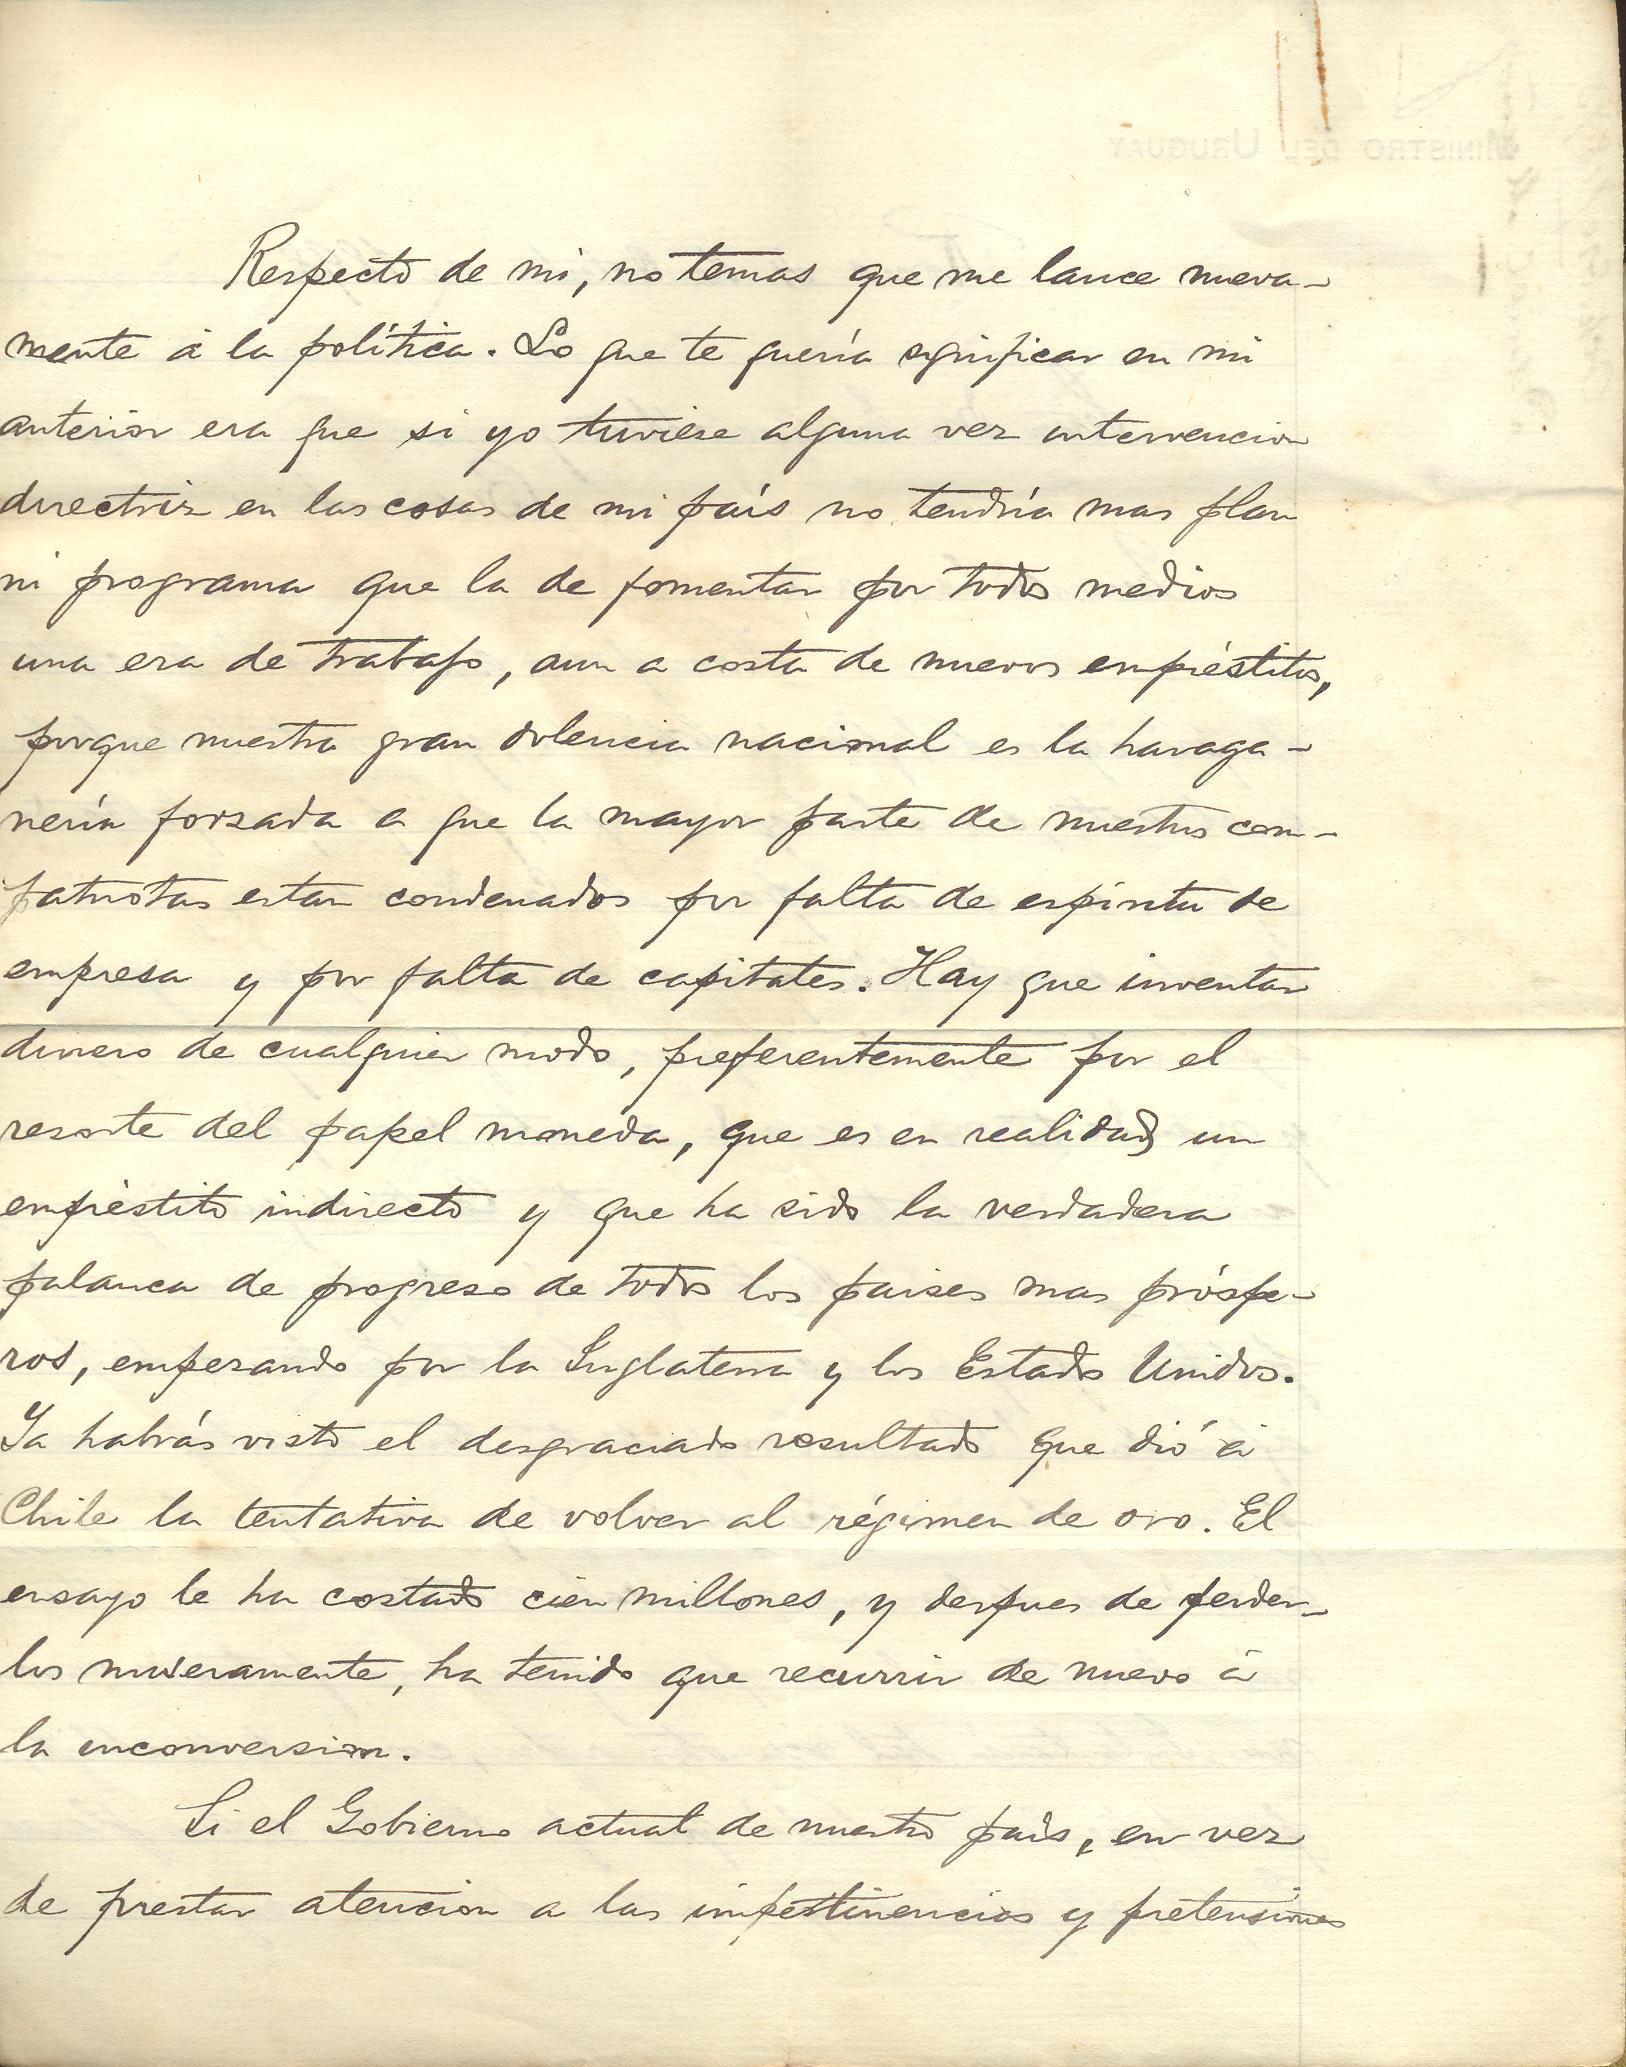 MINISTRO DEL URUGUAY
Respecto de mi, no temas que me lance nueva-
mente á la política. Lo que te quería significar en mi
anterior era que si yo tuviese alguna vez intervencion
directriz en las cosas de mi país no tendría mas plan
ni programa que la de fomentar por todos medios
una era de trabajo, aun a costa de nuevos empréstitos,
porque nuestra gran dolencia nacional es la haraga-
nería forzada a que la mayor parte de nuestros com-
patriotas estan condenados por falta de espíritu de
empresa y por falta de capitales. Hay que inventar
dinero de cualquier modo, preferentemente por el
resorte del papel moneda, que es en realidad un
empréstito indirecto y que ha sido la verdadera
palanca de progreso de todos los paises mas próspe-
ros, empezando por la Inglaterra y los Estados Unidos.
Ya habrás visto el desgraciado resultado que dió á
Chile la tentativa de volver al régimen de oro. El
ensayo le ha costado cien millones, y despues de perder-
los miseramente, ha tenido que recurrir de nuevo á
la inconversion.
Si el Gobierno actual de nuestro país, en vez
de prestar atencion a las impertinencias y pretensiones